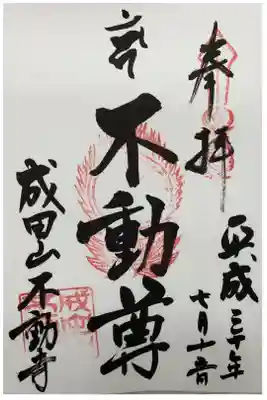 奉拝
平成三十年
七月十一日
不動尊
成田山不動寺